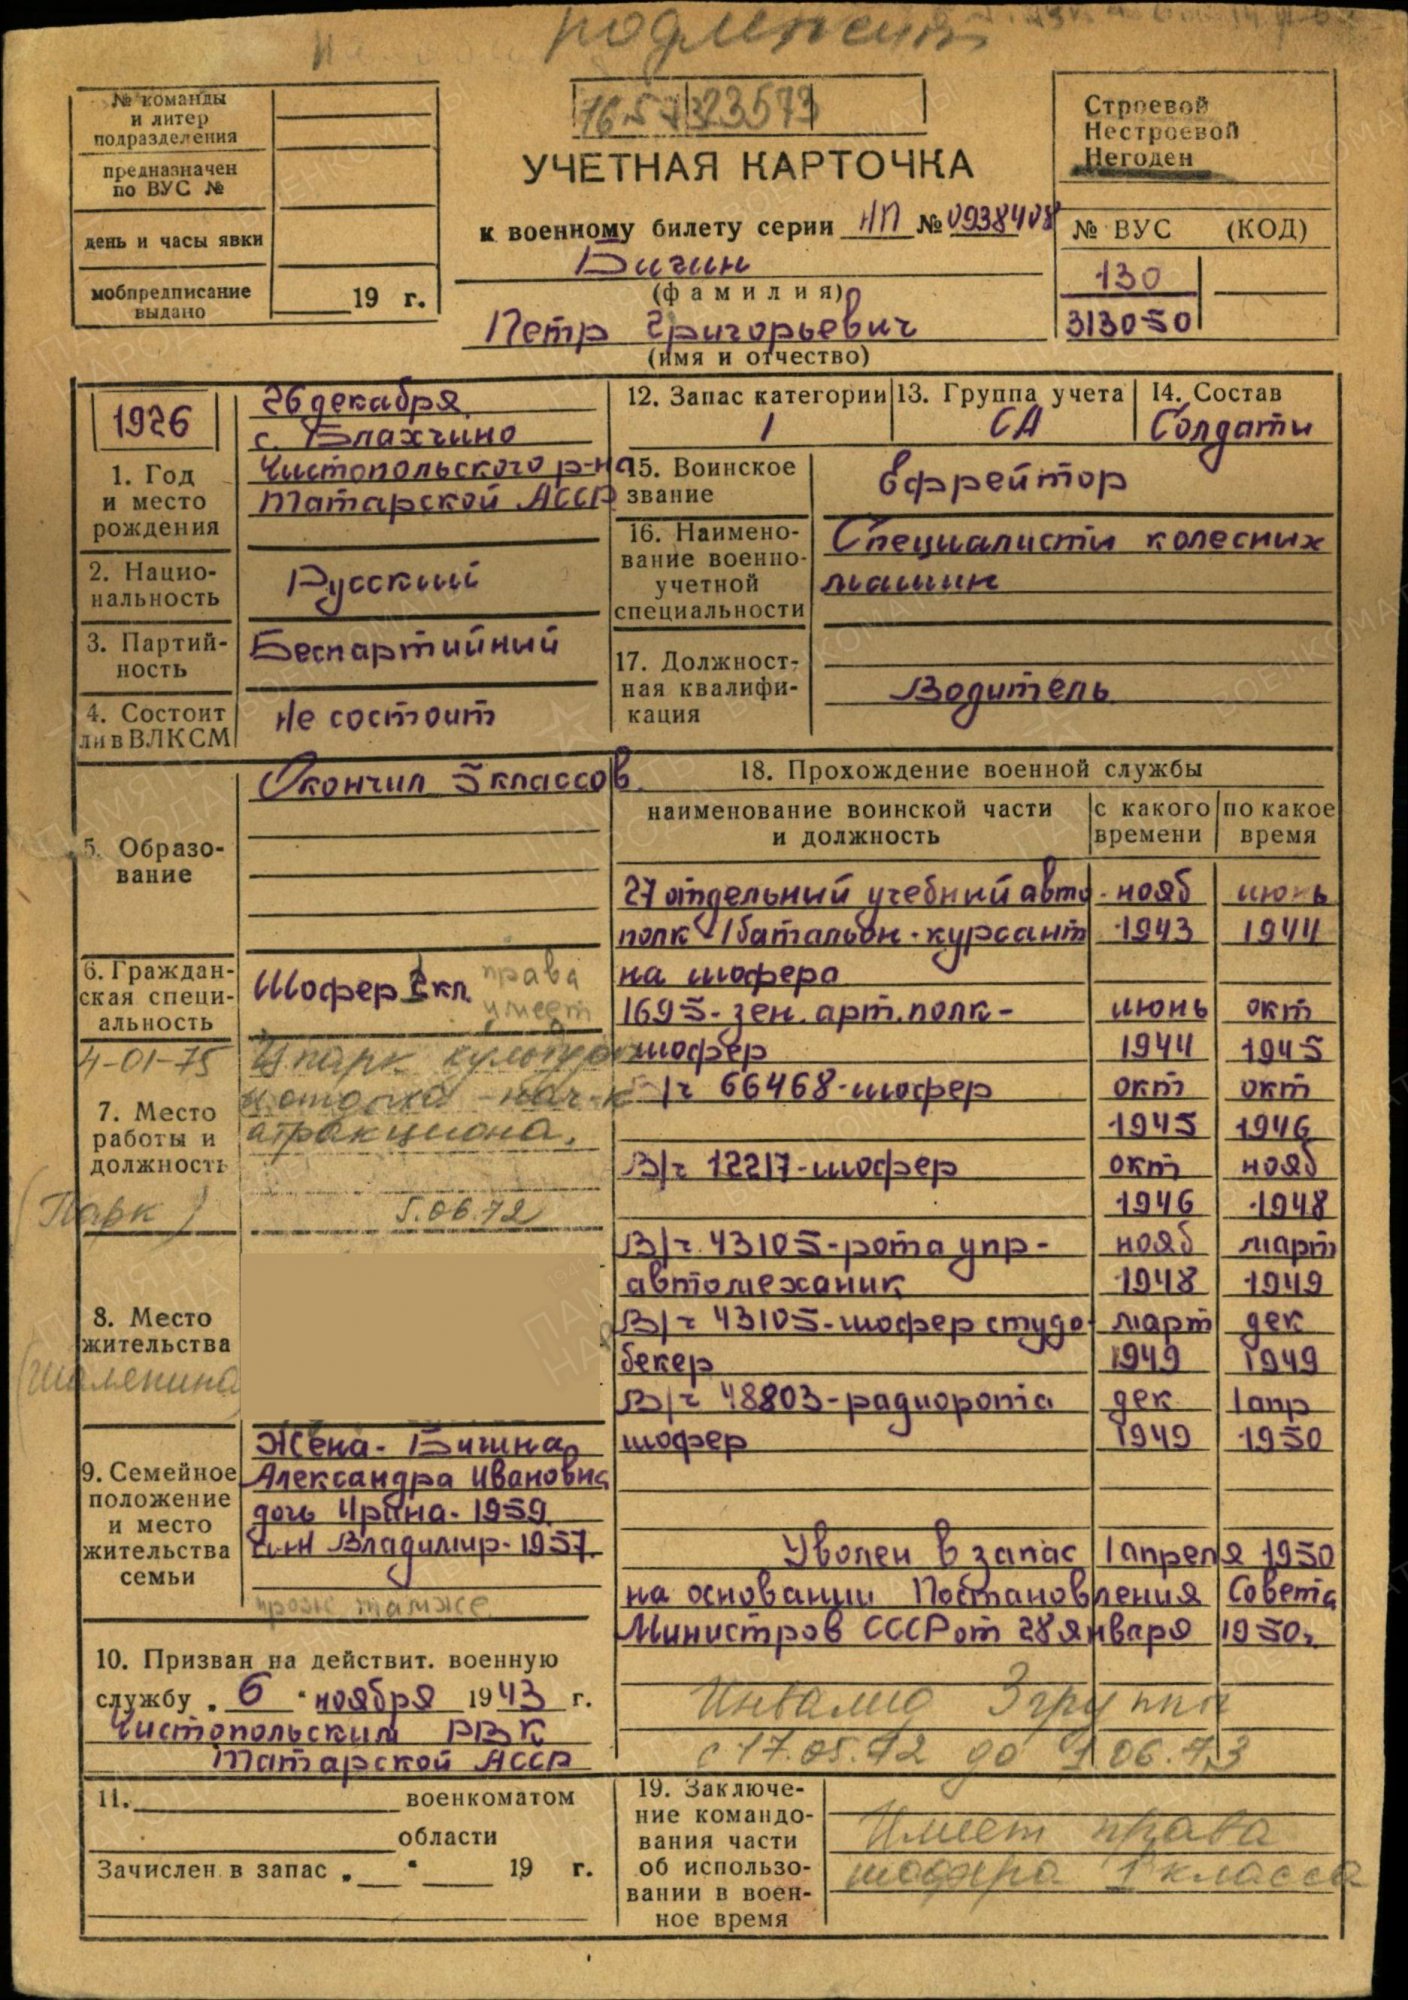 подлежит
№ команды
и литер
подразделения
предназначен
по ВУС №
день и часы явки
мобпредписание
выдано
19 г.
УЧЕТНАЯ КАРТОЧКА
к военному билету серии НП № 0938408
Бичин
(фамилия)
Петр Григорьевич
(имя и отчество)
Строевой
Нестроевой
Негоден
№ ВУС (КОД)
130
313050
1926
1. Год
и место
рождения
26 декабря
с. Блахчино
Чистопольского р-на
Татарской АССР
2. Нацио-
нальность
Русский
3. Партий-
ность
Беспартийный
4. Состоит
ли в ВЛКСМ
Не состоит
5. Образо-
вание
Окончил 5 классов
6. Граждан-
ская специ-
альность
Шофер кл.
права
имеет
4-01-75
7. Место
работы и
должность
(Парк)
парк культуры
и отдыха - нач-к
атракциона.
5.06.72
8. Место
жительства
9. Семейное
положение
и место
жительства
семьи
Жена - Бичина
Александра Ивановна
дочь Ирина - 1959
сын Владимир - 1957
прож. там же
10. Призван на действит. военную
службу „6“ ноября 1943 г.
Чистопольским РВК
Татарской АССР
11. военкоматом
области
Зачислен в запас „ “ 19 г.
12. Запас категории
1
13. Группа учета
СА
14. Состав
Солдаты
15. Воинское
звание
Ефрейтор
16. Наимено-
вание военно-
учетной
специальности
Специалисты колесных
машин
17. Должност-
ная квалифи-
кация
Водитель
18. Прохождение военной службы
наименование воинской части
и должность
с какого
времени
по какое
время
27 отдельный учебный авто- нояб июнь
полк 1 батальон - курсант 1943 1944
на шофера
1695 - зен. арт. полк - июнь окт
шофер 1944 1945
В/ч 66468 - шофер окт окт
1945 1946
В/ч 12217 - шофер окт нояб
1946 1948
В/ч 43105 - рота упр - нояб март
автомеханик 1948 1949
В/ч 43105 - шофер студо- март дек
бекер 1949 1949
В/ч 48803 - радиорота дек 1 апр
шофер 1949 1950
Уволен в запас 1 апреля 1950
на основании Постановления Совета
Министров СССР от 28 января 1950 г.
Инвалид 3 группы
с 17.05.72 до 1.06.73
19. Заключе-
ние командо-
вания части
об использо-
вании в воен-
ное время
Имеет права
шофера 1 класса